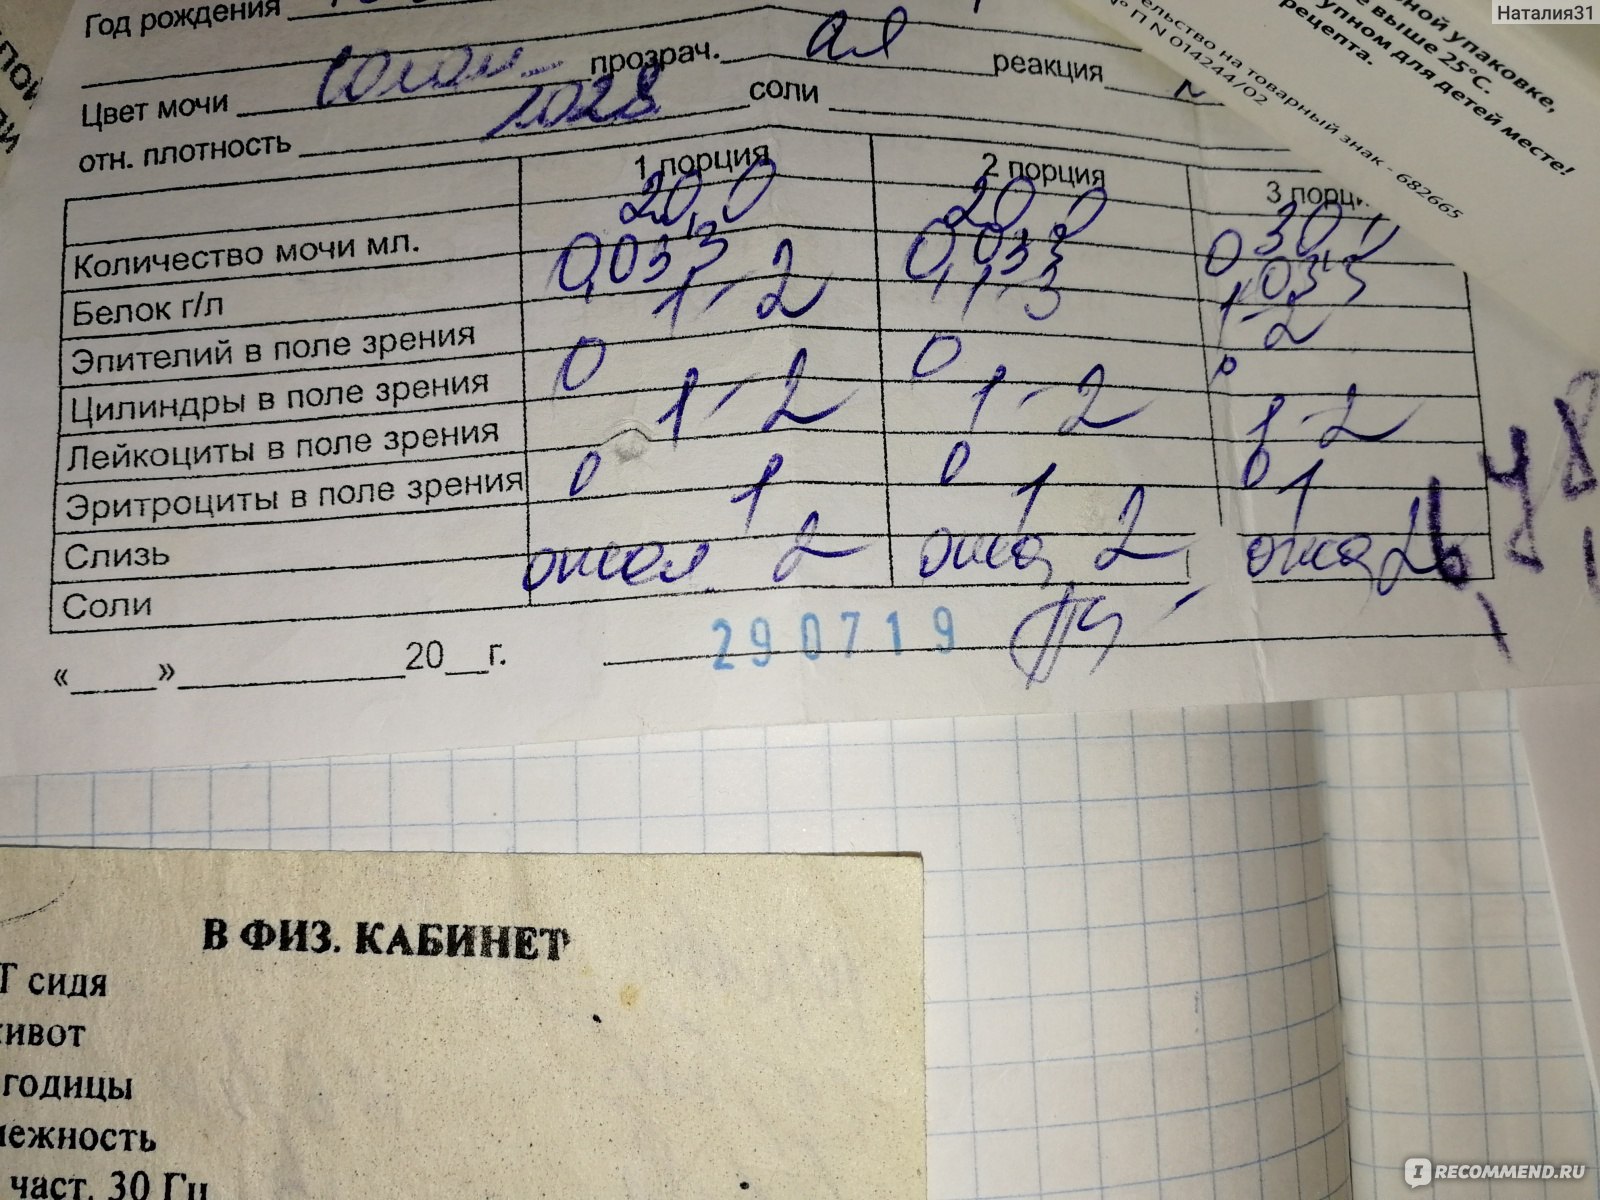 Наталия31
ной упаковке,
е выше 25°C.
упном для детей месте!
рецепта.
ельство на товарный знак - 682665
№ П N 014244/02
Год рождения
Цвет мочи солом прозрач. реакция
отн. плотность 1028 соли
1 порция 2 порция 3 порц
Количество мочи мл. 20,0 20,0 30,0
Белок г/л 0,033 0,033 0,033
Эпителий в поле зрения 1-2 1-3 1-2
Цилиндры в поле зрения 0 0 0
Лейкоциты в поле зрения 1-2 1-2 1-2
Эритроциты в поле зрения 0 0 0
Слизь 1 1 1
Соли 2 2 2
« » 20 г. 290719
В ФИЗ. КАБИНЕТ
Т сидя
живот
годицы
межность
част. 30 Гц
IRECOMMEND.RU